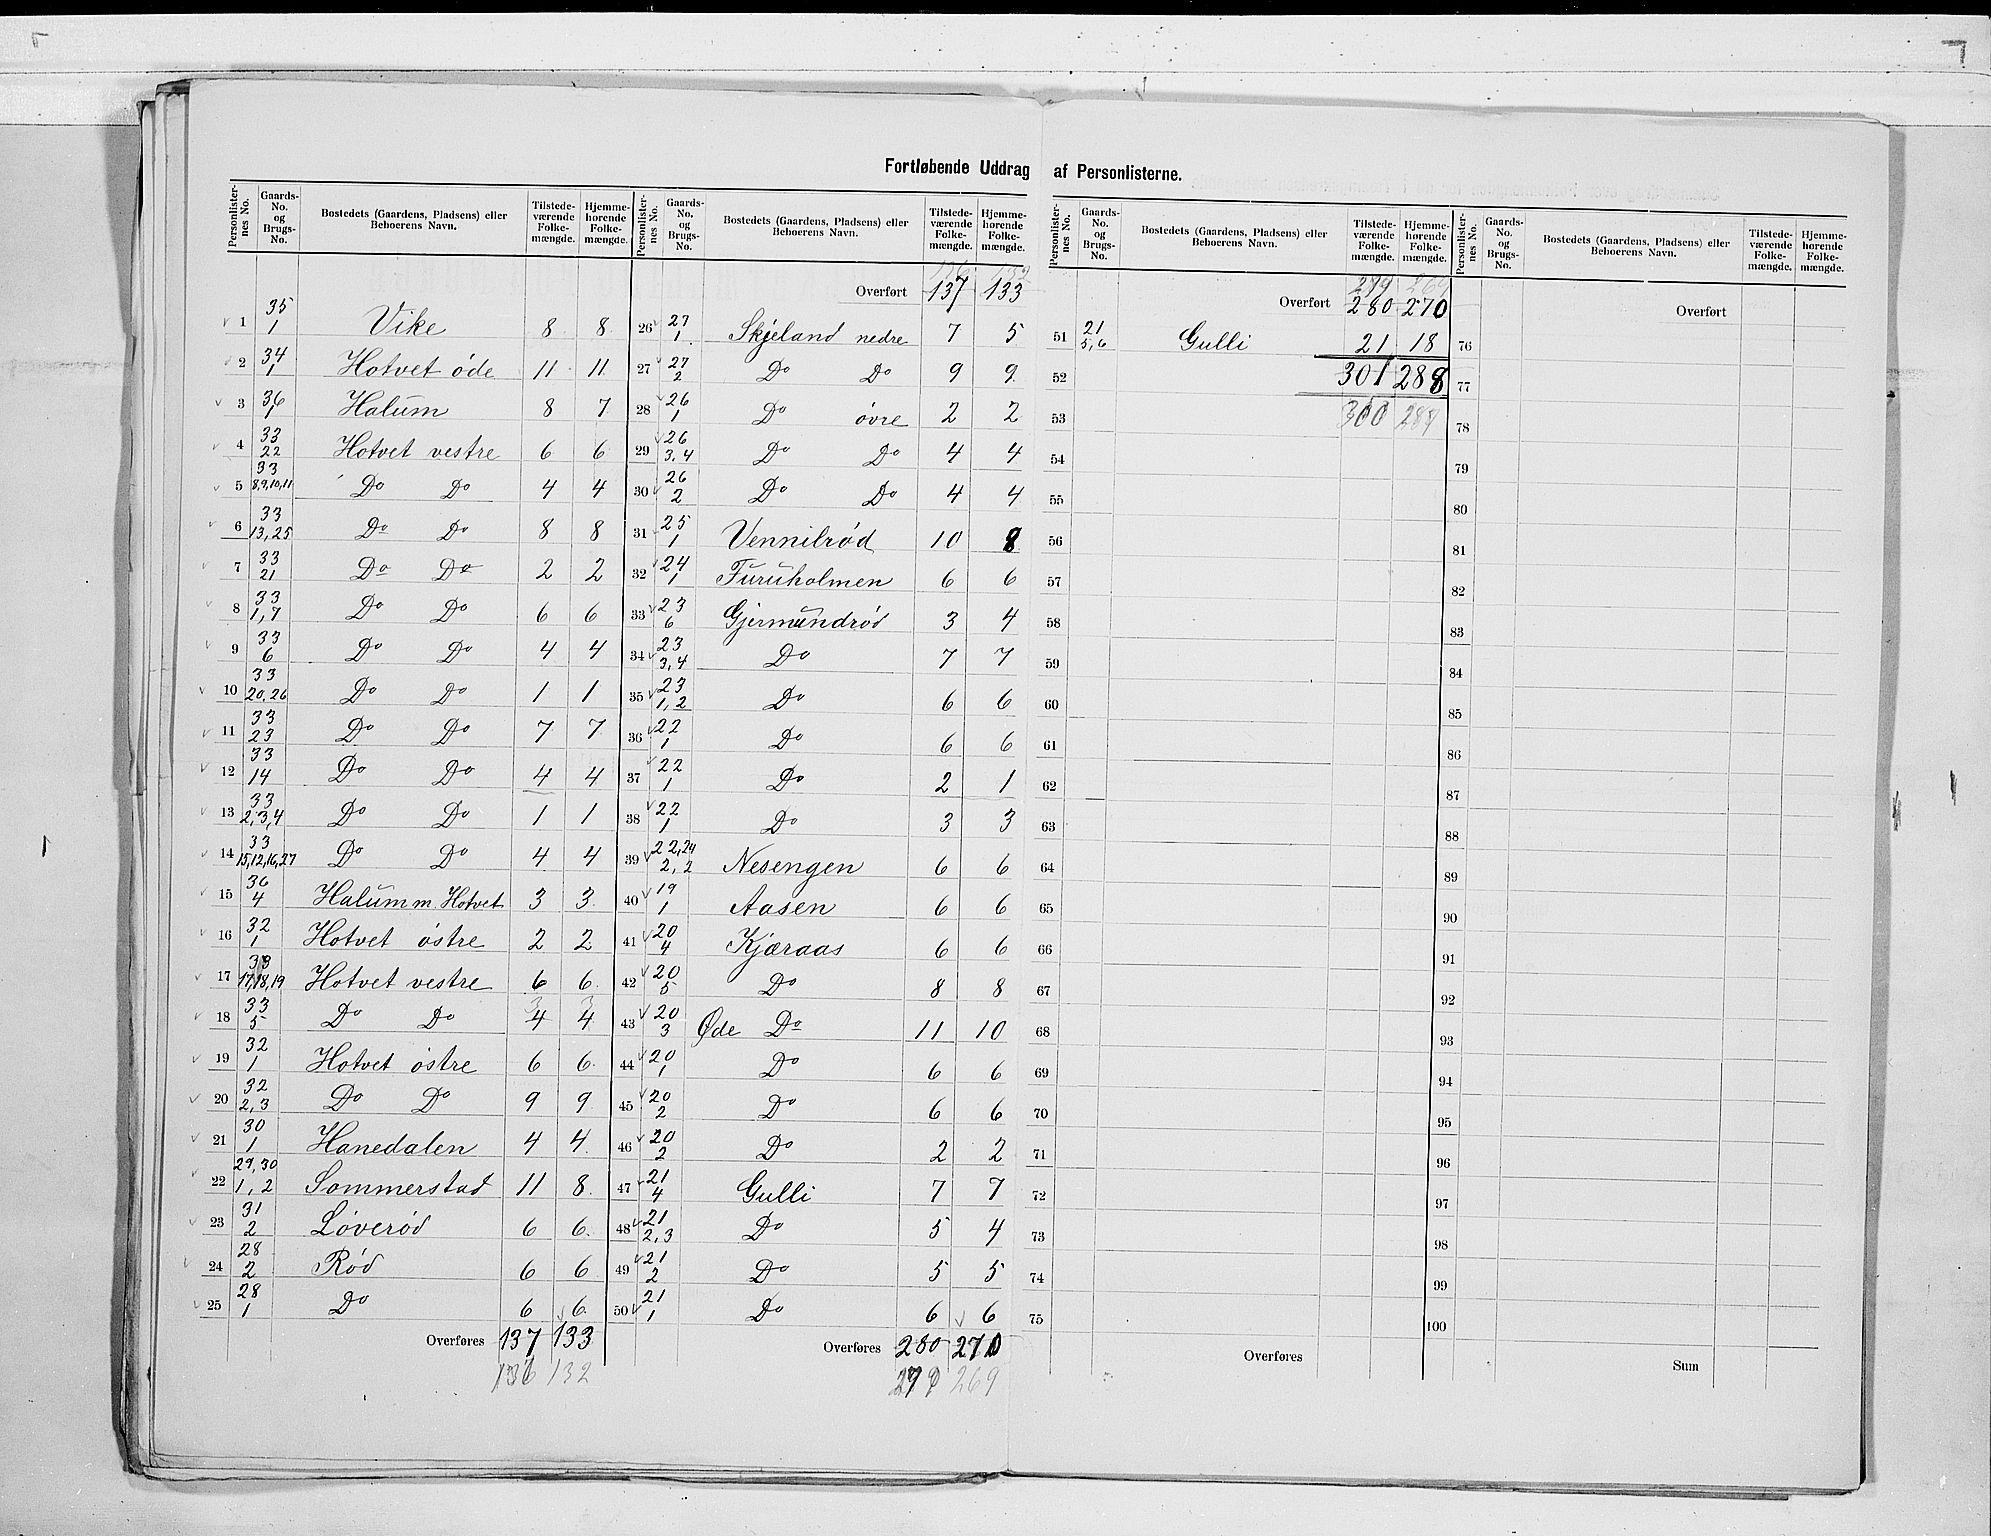 Fortløbende Uddrag af Personlisterne.
Personlister-nes No. | Gaards-No. og Brugs-No. | Bostedets (Gaardens, Pladsens) eller Beboerens Navn. | Tilstede-værende Folke-mængde. | Hjemme-hørende Folke-mængde.
1 | 35 / 1 | Vike | 8 | 8
2 | 34 / 1 | Hotvet øde | 11 | 11
3 | 36 / 1 | Halum | 8 | 7
4 | 33 / 22 | Hotvet vestre | 6 | 6
5 | 33 / 8,9,10,11 | Do Do | 4 | 4
6 | 33 / 13,25 | Do Do | 8 | 8
7 | 33 / 21 | Do Do | 2 | 2
8 | 33 / 1,7 | Do Do | 6 | 6
9 | 33 / 6 | Do Do | 4 | 4
10 | 33 / 20,26 | Do Do | 1 | 1
11 | 33 / 23 | Do Do | 7 | 7
12 | 33 / 14 | Do Do | 4 | 4
13 | 33 / 2,3,4 | Do Do | 1 | 1
14 | 33 / 15,12,16,27 | Do Do | 4 | 4
15 | 36 / 4 | Halum m. Hotvet | 3 | 3
16 | 32 / 1 | Hotvet østre | 2 | 2
17 | 33 / 17,18,19 | Hotvet vestre | 6 | 6
18 | 33 / 5 | Do Do | 3 4 | 3 4
19 | 32 / 1 | Hotvet østre | 6 | 6
20 | 32 / 2,3 | Do Do | 9 | 9
21 | 30 / 1 | Hanedalen | 4 | 4
22 | 29,30 / 1,2 | Sommerstad | 11 | 8
23 | 31 / 2 | Løverød | 6 | 6
24 | 28 / 2 | Rød | 6 | 6
25 | 28 / 1 | Do | 6 | 6
Overføres 137 | 133
136 | 132
Personlister-nes No. | Gaards-No. og Brugs-No. | Bostedets (Gaardens, Pladsens) eller Beboerens Navn. | Tilstede-værende Folke-mængde. | Hjemme-hørende Folke-mængde.
136 | 132
Overført 137 | 133
26 | 27 / 1 | Skjeland nedre | 7 | 5
27 | 27 / 2 | Do Do | 9 | 9
28 | 26 / 1 | Do øvre | 2 | 2
29 | 26 / 3.4 | Do Do | 4 | 4
30 | 26 / 2 | Do Do | 4 | 4
31 | 25 / 1 | Vennilrød | 10 | 8
32 | 24 / 1 | Furuholmen | 6 | 6
33 | 23 / 6 | Gjermundrød | 3 | 4
34 | 23 / 3,4 | Do | 7 | 7
35 | 23 / 1,2 | Do | 6 | 6
36 | 22 / 1 | Do | 6 | 6
37 | 22 / 1 | Do | 2 | 1
38 | 22 / 1 | Do | 3 | 3
39 | 22,24 / 2,2 | Nesengen | 6 | 6
40 | 19 / 1 | Aasen | 6 | 6
41 | 20 / 4 | Kjæraas | 6 | 6
42 | 20 / 5 | Do | 8 | 8
43 | 20 / 3 | Øde Do | 11 | 10
44 | 20 / 1 | Do | 6 | 6
45 | 20 / 2 | Do | 6 | 6
46 | 20 / 2 | Do | 2 | 2
47 | 21 / 4 | Gulli | 7 | 7
48 | 21 / 2,3 | Do | 5 | 4
49 | 21 / 2 | Do | 5 | 5
50 | 21 / 1 | Do | 6 | 6
Overføres 280 | 270
279 | 269
Personlister-nes No. | Gaards-No. og Brugs-No. | Bostedets (Gaardens, Pladsens) eller Beboerens Navn. | Tilstede-værende Folke-mængde. | Hjemme-hørende Folke-mængde.
279 | 269
Overført 280 | 270
51 | 21 / 5,6 | Gulli | 21 | 18
52 | 301 | 288
53 | 300 | 287
54
55
56
57
58
59
60
61
62
63
64
65
66
67
68
69
70
71
72
73
74
75
Overføres
Personlister-nes No. | Gaards-No. og Brugs-No. | Bostedets (Gaardens, Pladsens) eller Beboerens Navn. | Tilstede-værende Folke-mængde. | Hjemme-hørende Folke-mængde.
Overført
76
77
78
79
80
81
82
83
84
85
86
87
88
89
90
91
92
93
94
95
96
97
98
99
100
Sum